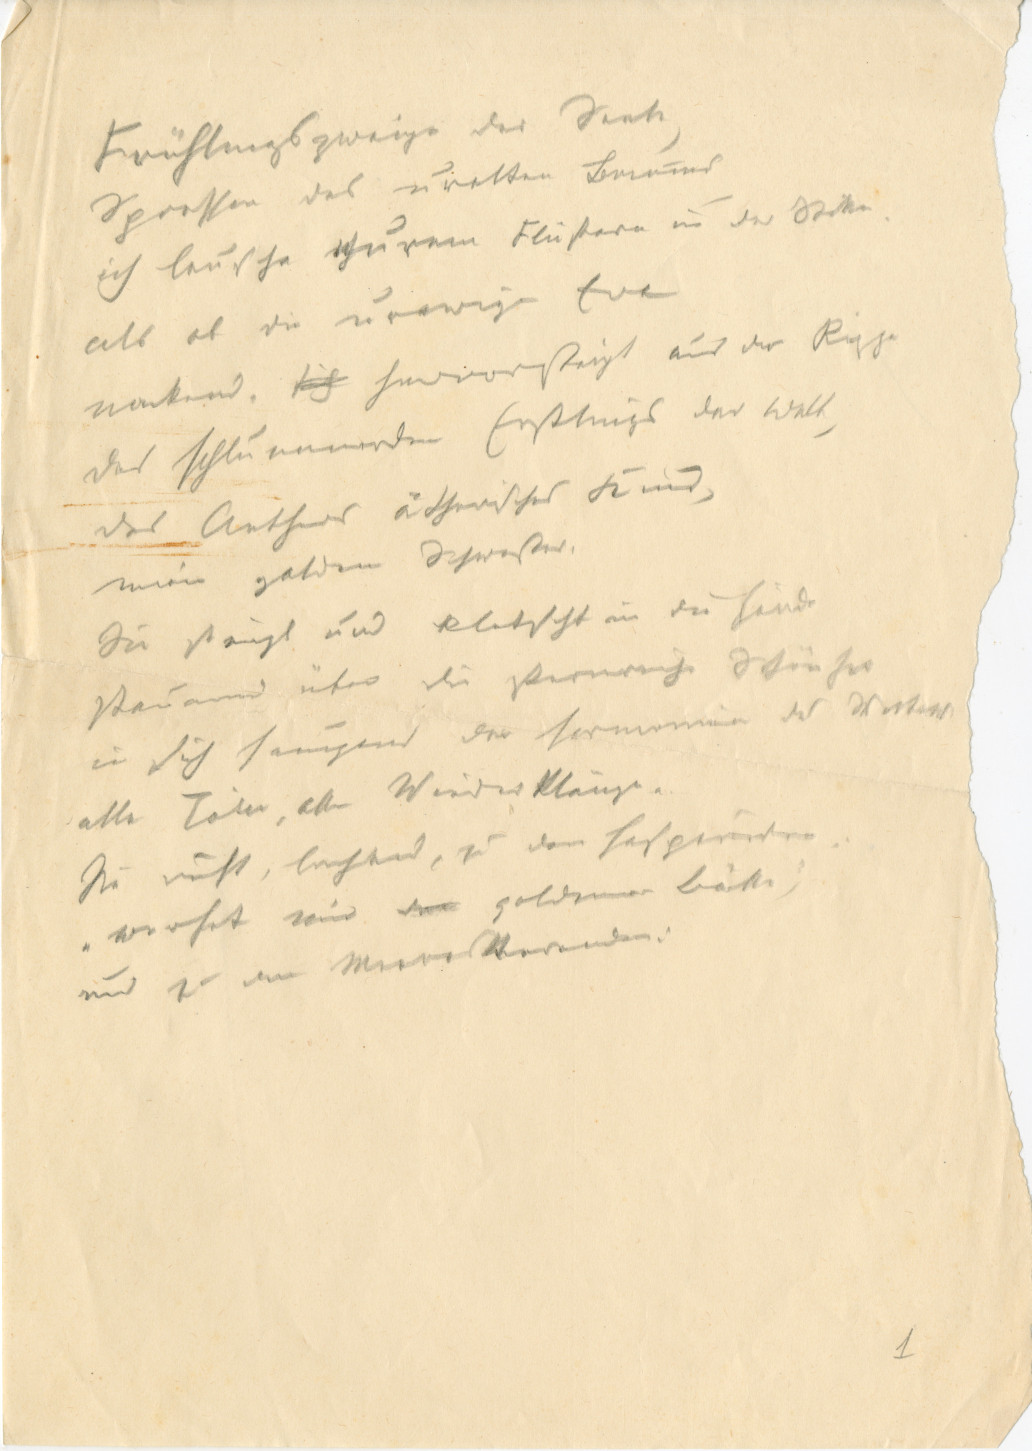 Frühlingszweige der Seele,
Sprossen des uralten Baumes
ich lausche eurem Flüstern in der Stille.
als ob die urewige Eva
nackend. sich hervorsteigt aus der Rippe
des schlummernden Erstlings der Welt,
des Aethers ätherisches Kind,
meine goldene Schwester.
Sie steigt und klatscht in die Hände
staunend über die sternreiche
in sich saugend der Harmonien des Weltalls
alle Töne, alle Wiederklänge.
Sie ruft, lachend, zu den Hesperiden.
„werfet mir den goldenen Bälle,"
und zu den
1